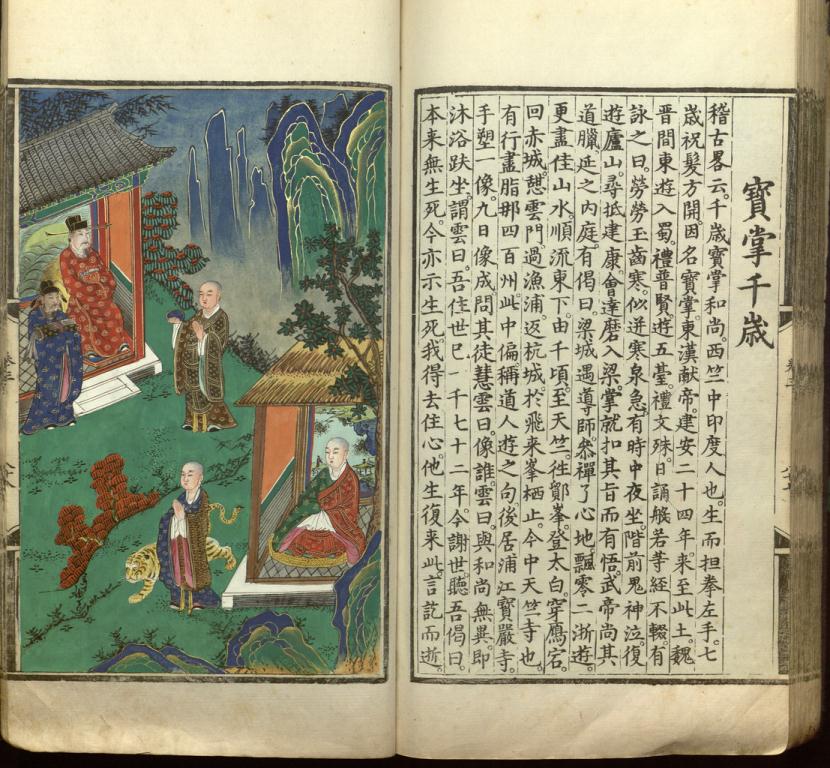 寶掌千歲
稽古畧云。千歲寶掌和尚。西竺中印度人也。生而担拳左手。七
歲祝髮方開。因名寶掌。東漢献帝。建安二十四年。来至此土。魏
晋間東遊入蜀。禮普賢。遊五臺。禮文殊。日誦般若等経不輟。有
詠之曰。勞勞玉齒寒。似迸寒泉急。有時中夜坐。階前鬼神泣。復
遊廬山。尋抵建康。會達磨入梁。掌就扣其旨而有悟。武帝尚其
道臘。延之内庭。有偈曰。梁城遇導師。叅禪了心地。飄零二浙遊。
更盡佳山水。順流東下。由千頃。至天竺。徃鄮峯。登太白。穿鴈宕。
回赤城。憇雲門。過漁浦。返杭城。於飛来峯栖止。今中天竺寺也。
有行盡脂那四百州。此中偏稱道人遊之句。後居浦江寶嚴寺。
手塑一像。九日像成。問其徒慧雲曰。像誰。雲曰。與和尚無異。即
沐浴趺坐。謂雲曰。吾住世已一千七十二年。今謝世。聽吾偈曰。
本来無生死。今亦示生死。我得去住心。他生復来此。言訖而逝。